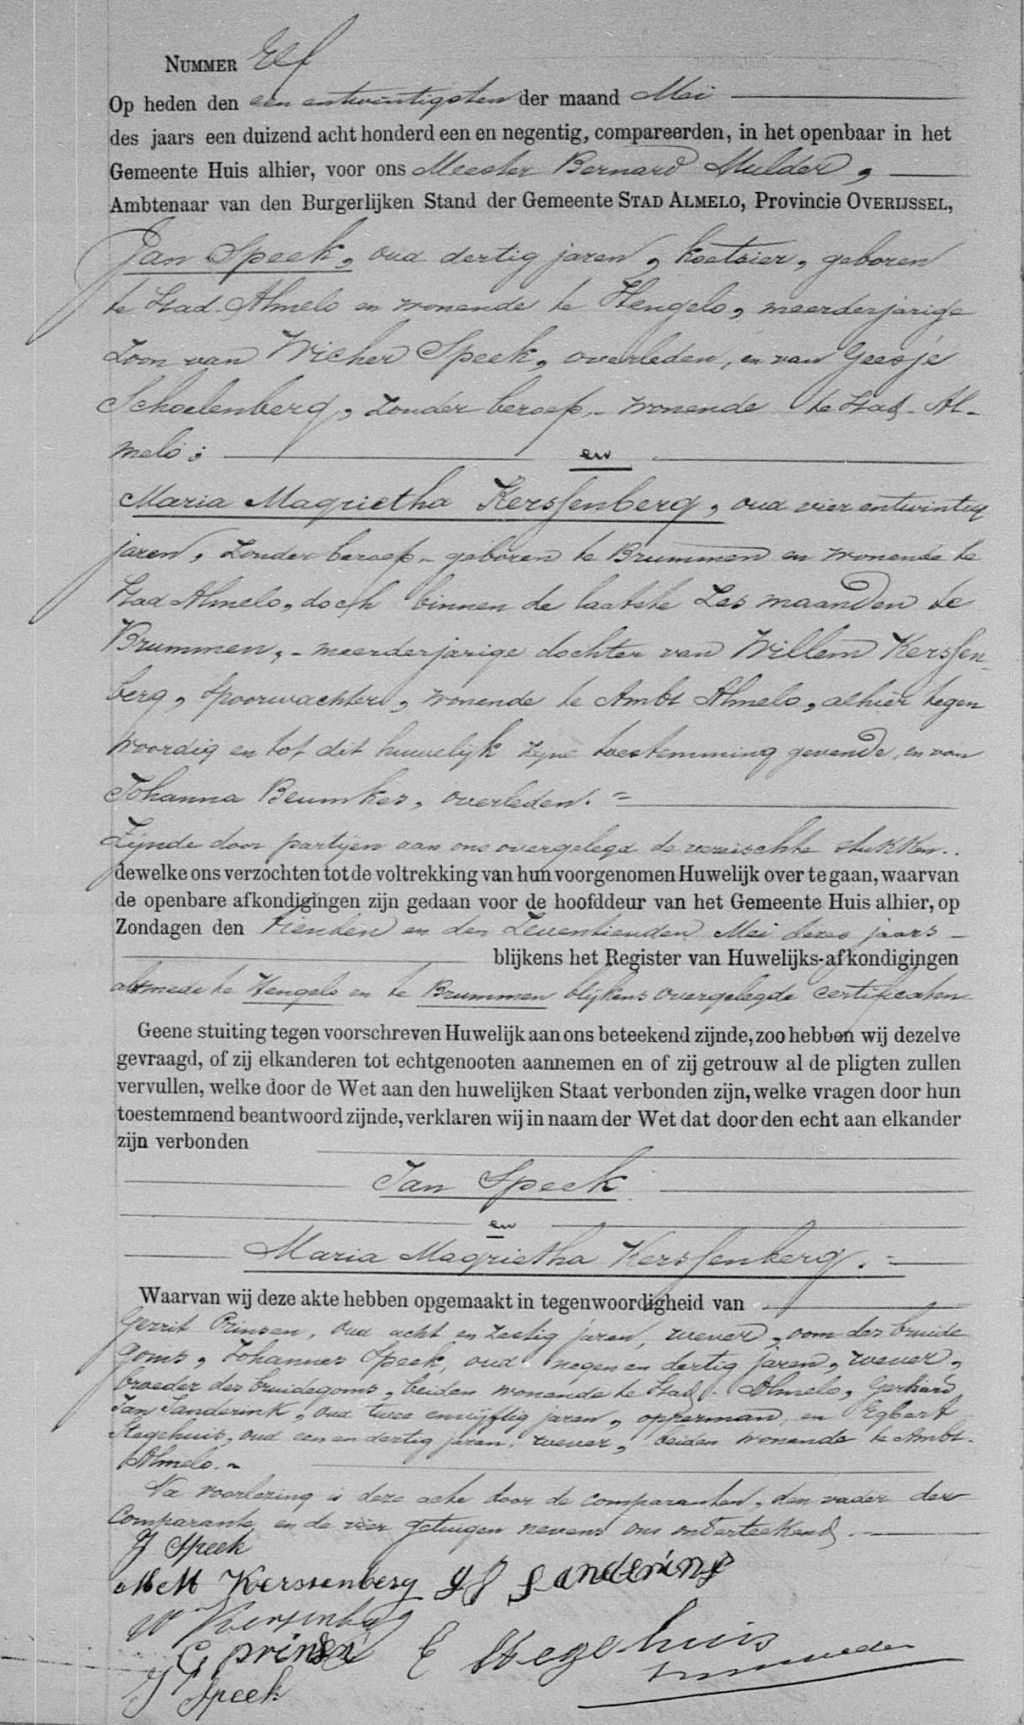 NUMMER Elf
Op heden den een entwintigsten der maand Mei
des jaars een duizend acht honderd een en negentig, compareerden, in het openbaar in het
Gemeente Huis alhier, voor ons Meester Bernard Mulder,
Ambtenaar van den Burgerlijken Stand der Gemeente STAD ALMELO, Provincie OVERIJSSEL,
Jan Speek, oud dertig jaren, koetsier, geboren
te Stad Almelo en wonende te Hengelo, meerderjarige
Zoon van Wicher Speek, overleden, en van Geesje
Schoelenberg, zonder beroep, wonende te Stad Al-
melo;
en
Maria Magrietha Kerssenberg, oud vier entwintig
jaren, zonder beroep geboren te Brummen en wonende te
Stad Almelo, doch binnen de laatste Zes maanden te
Brummen, meerderjarige dochter van Willem Kerssen-
berg, Spoorwachter, wonende te Ambt Almelo, alhier tegen
woordig en tot dit huwelijk zijne toestemming gevende, en van
Johanna Beumkes, overleden. =
Zijnde door partijen aan ons overgelegd de vereischte stukken.
dewelke ons verzochten tot de voltrekking van hun voorgenomen Huwelijk over te gaan, waarvan
de openbare afkondigingen zijn gedaan voor de hoofddeur van het Gemeente Huis alhier, op
Zondagen den tienden en den Zeventienden Mei dezes jaars
blijkens het Register van Huwelijks-afkondigingen
alsmede te Hengelo en te Brummen blijkens overgelegde certificaten.
Geene stuiting tegen voorschreven Huwelijk aan ons beteekend zijnde, zoo hebben wij dezelve
gevraagd, of zij elkanderen tot echtgenooten aannemen en of zij getrouw al de pligten zullen
vervullen, welke door de Wet aan den huwelijken Staat verbonden zijn, welke vragen door hun
toestemmend beantwoord zijnde, verklaren wij in naam der Wet dat door den echt aan elkander
zijn verbonden
Jan Speek
en
Maria Magrietha Kerssenberg. =
Waarvan wij deze akte hebben opgemaakt in tegenwoordigheid van
Gerrit Prinsen, oud acht en zestig jaren, wever, oom des bruide
goms, Johannes Speek, oud negen en dertig jaren, wever,
broeder des bruidegoms, beiden wonende te Stad Almelo, Gerhard
Jan Sanderink, oud twee en vijftig jaren, opperman, en Egbert
Stegehuis, oud een en dertig jaren, wever, beiden wonende te Ambt
Almelo.
Na voorlezing is deze acte door de comparanten, den vader der
Comparante en de vier getuigen nevens ons onderteekend.
J Speek
M M Kerssenberg G J Sanderink
W Kersenberg
G prinsen E Stegehuis
J Speek